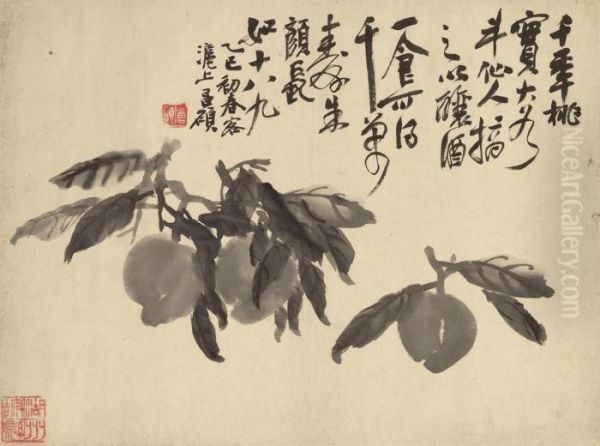 千年桃
實大於
斗仙人摘
之以釀酒
一食可得
千萬
壽朱
顏長
如十八九
乙巳初春客
滬上昌碩
© NiceArtGallery.com